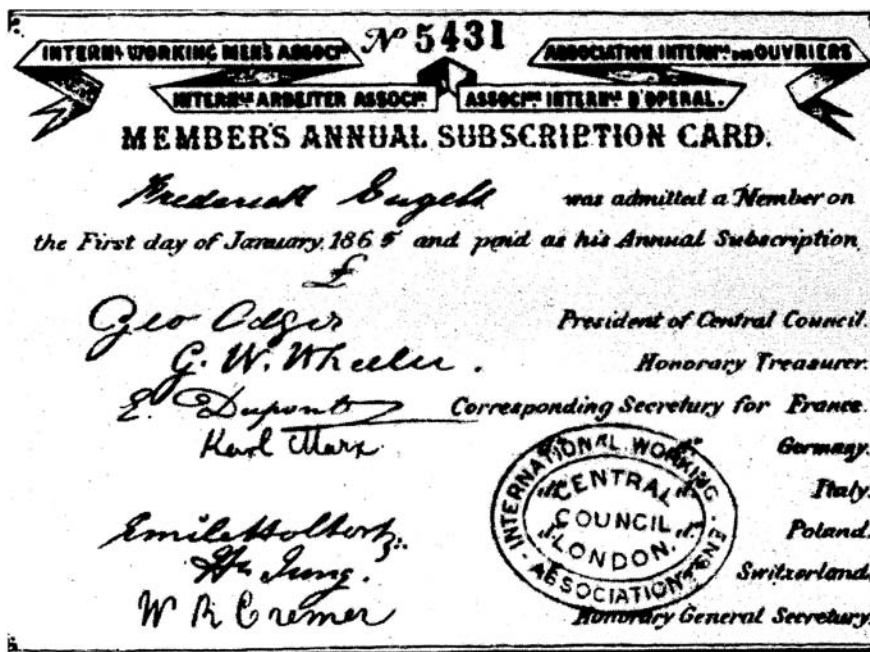 Nº 5431
INTERNL WORKING MEN'S ASSOCTN
ASSOCIATION INTERNLE DES OUVRIERS
INTERNLE ARBEITER ASSOCN.
ASSOCNE INTERNLE D'OPERAI.
MEMBER'S ANNUAL SUBSCRIPTION CARD.
Frederick Engels was admitted a Member on
the First day of January, 1865 and paid as his Annual Subscription
£
Geo Odger President of Central Council.
G. W. Wheeler. Honorary Treasurer.
E. Dupont Corresponding Secretary for France.
Karl Marx Germany.
Italy.
Emile Holtorp. Poland.
Hn Jung. Switzerland.
W R Cremer Honorary General Secretary.
INTERNATIONAL WORKING MENS ASSOCIATION
CENTRAL
COUNCIL
LONDON.